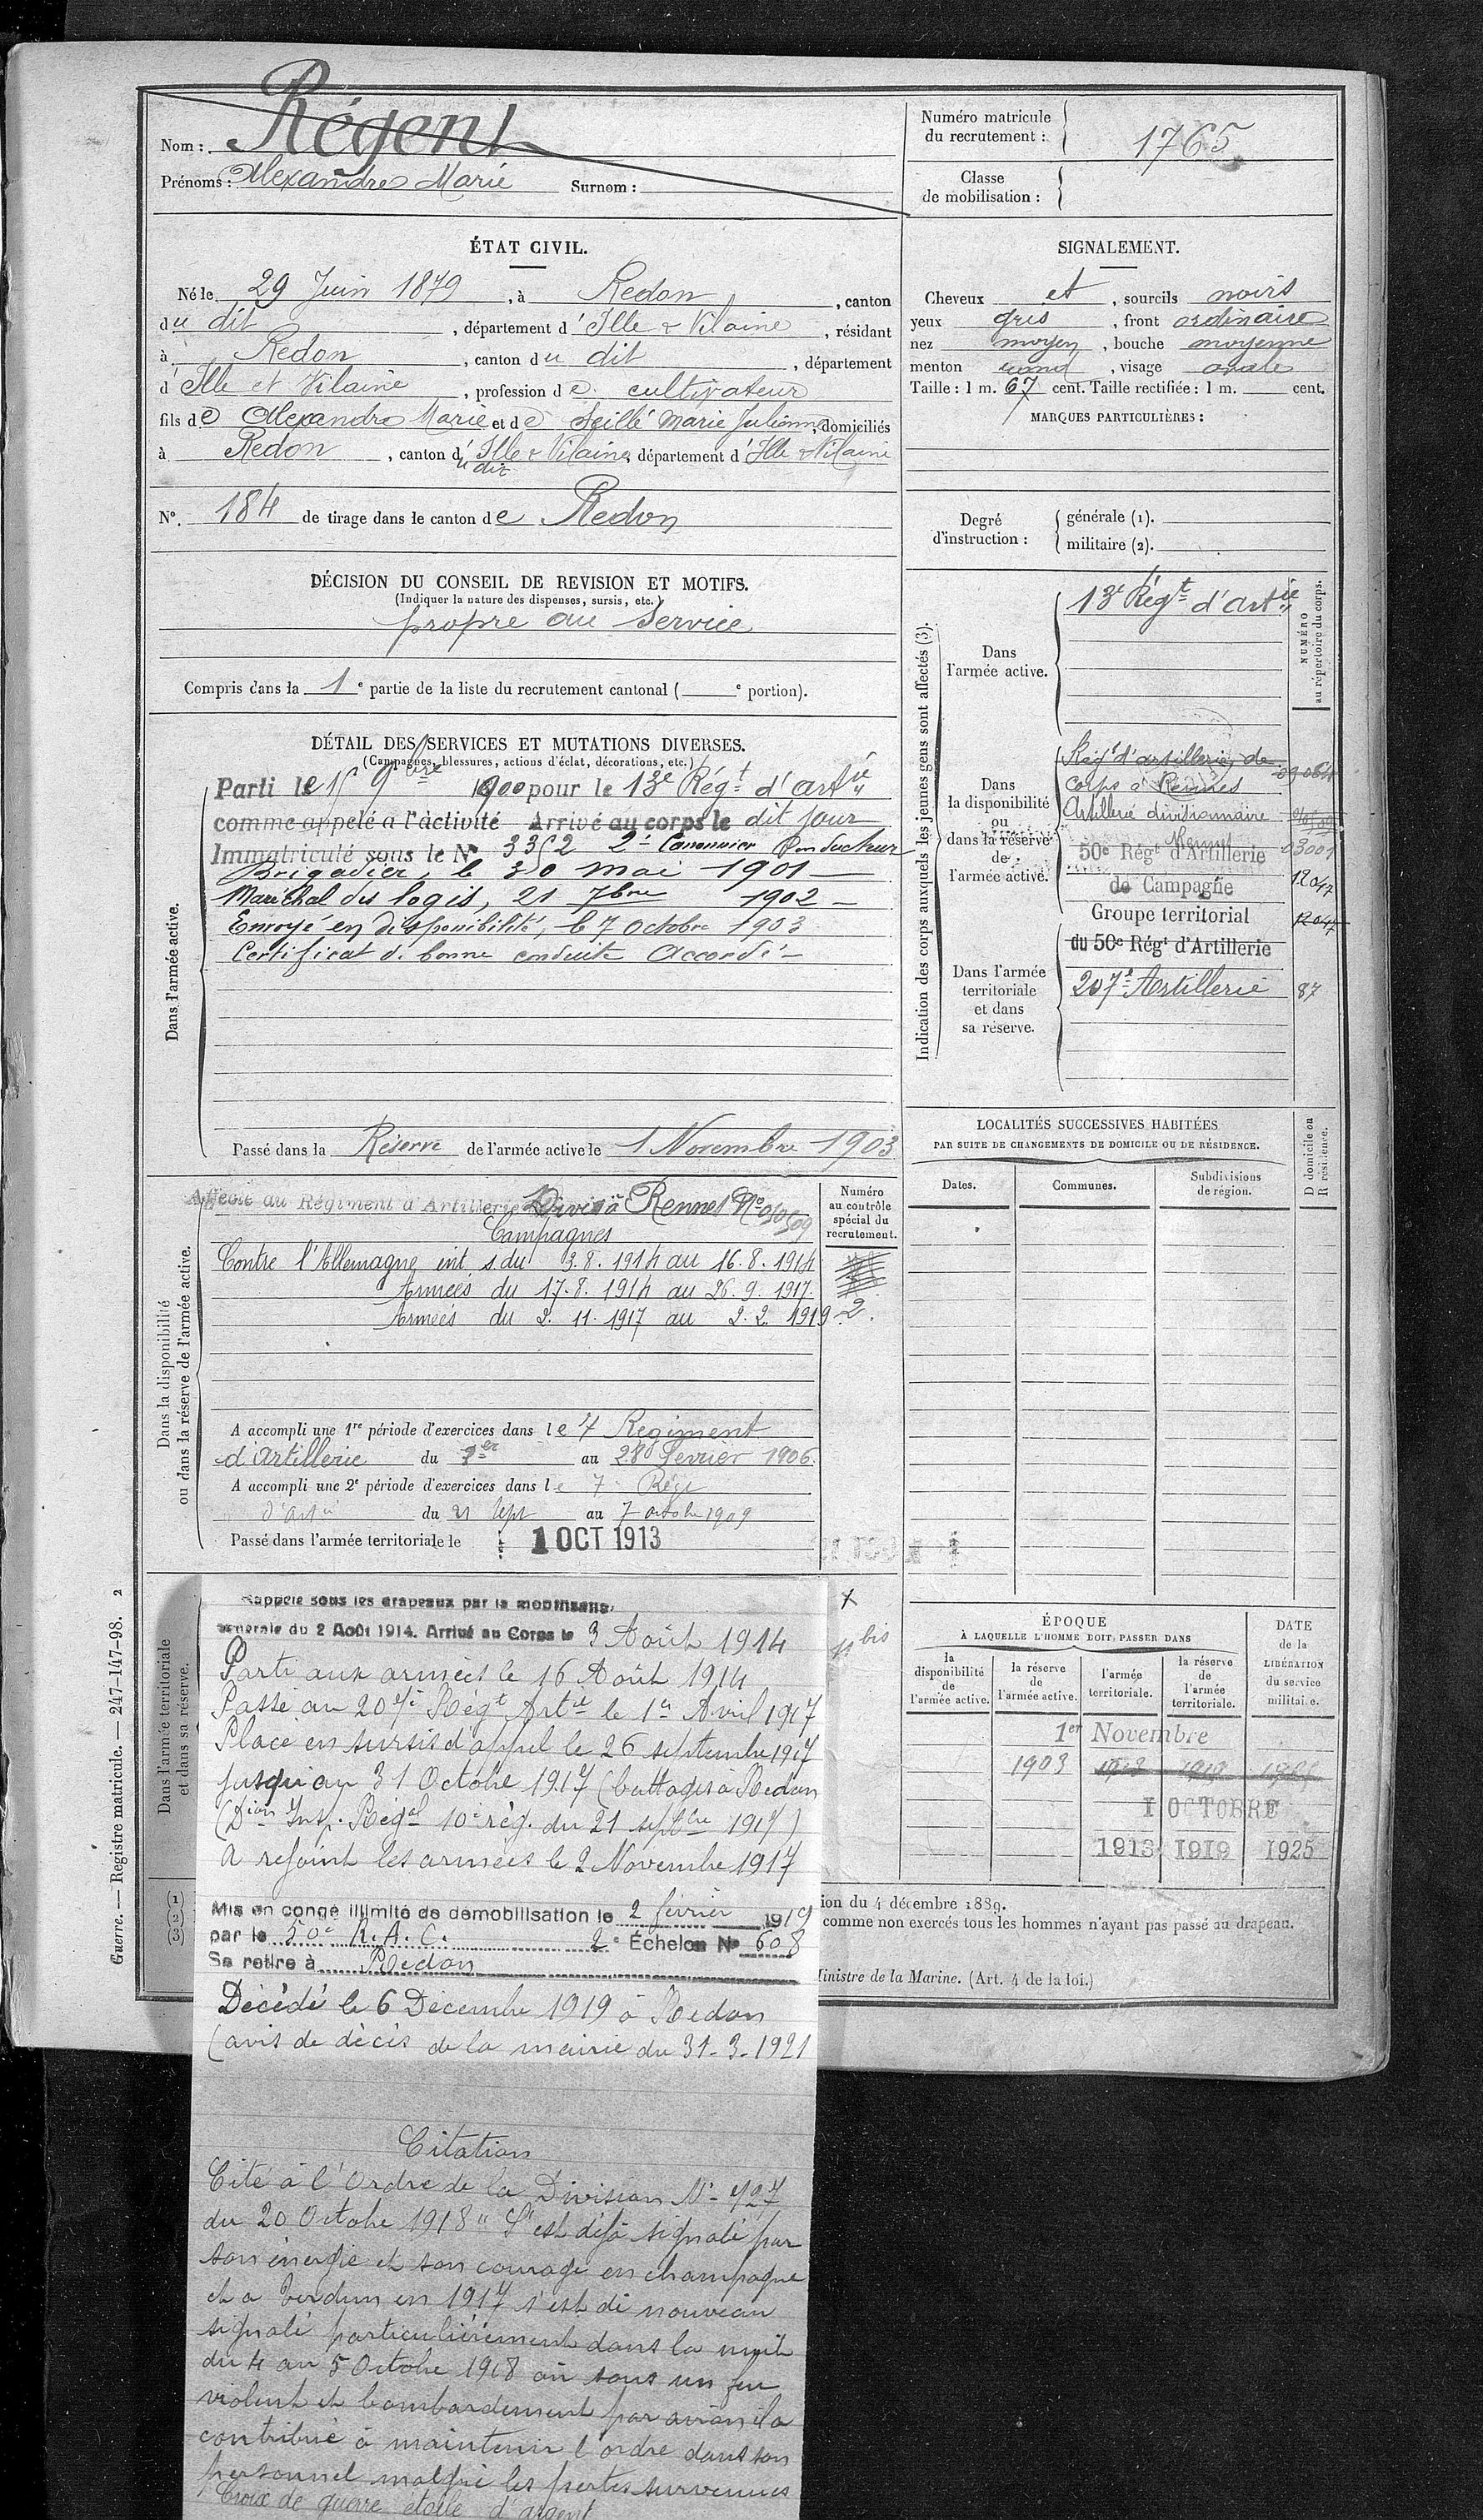 Nom : Régent
Prénoms : Alexandre Marie Surnom :
Numéro matricule
du recrutement : 1765
Classe
de mobilisation :
ÉTAT CIVIL.
Né le 29 Juin 1879, à Redon, canton
du dit, département d'Ille & Vilaine, résidant
à Redon, canton du dit, département
d'Ille et Vilaine, profession de cultivateur
fils de Alexandre Marie et de Seillé Marie Julienne, domiciliés
à Redon, canton d'Ille & Vilaine, département d'Ille & Vilaine
u dit
N° 184 de tirage dans le canton de Redon
DÉCISION DU CONSEIL DE REVISION ET MOTIFS.
(Indiquer la nature des dispenses, sursis, etc.)
propre au Service
Compris dans la 1e partie de la liste du recrutement cantonal ( e portion).
DÉTAIL DES SERVICES ET MUTATIONS DIVERSES.
(Campagnes, blessures, actions d'éclat, décorations, etc.)
Dans l'armée active.
Parti le 15 9bre 1900 pour le 13e Régt d'artie
comme appelé à l'activité Arrivé au corps le dit jour
Immatriculé sous le N° 3352 2e Canonnier Conducteur
Brigadier, le 30 mai 1901
Maréchal des logis, 21 7bre 1902
Envoyé en disponibilité, le 7 octobre 1903
Certificat de bonne conduite Accordé
Passé dans la Réserve de l'armée active le 1 Novembre 1903
Dans la disponibilité
ou dans la réserve de l'armée active.
Affecté au Régiment d'Artillerie Divre à Rennes No 050509
Numéro
au contrôle
spécial du
recrutement.
Campagnes
Contre l'Allemagne int s du 3.8.1914 au 16.8.1914
Armées du 17.8.1914 au 26.9.1917.
Armées du 2.11.1917 au 2.2.1919 2.
A accompli une 1re période d'exercices dans le 7 Régiment
d'Artillerie du 1er au 28 Février 1906.
A accompli une 2e période d'exercices dans le 7e Régt
d'artie du 21 Sept au 7 octobre 1909
Passé dans l'armée territoriale le 1 OCT 1913
Dans l'armée territoriale
et dans sa réserve.
Rappelé sous les drapeaux par la mobilisation
générale du 2 Août 1914. Arrivé au Corps le 3 Août 1914
Parti aux armées le 16 Août 1914
Passé au 207e Régt Artie le 1er Avril 1917
Placé en sursis d'appel le 26 septembre 1917
jusqu'au 31 Octobre 1917 (battages à Redon
(Dion Insp. Régal 10e rég. du 21 septbre 1917)
A rejoint les armées le 2 Novembre 1917
Mis en congé illimité de démobilisation le 2 février 1919
par le 50e R.A.C. 2e Échelon N° 608
Se retire à Redon
Décédé le 6 Décembre 1919 à Redon
(avis de décès de la mairie du 31-3-1921
Citation
Cité à l'Ordre de la Division N° 427
du 20 Octobre 1918 " S'est déjà signalé par
son énergie et son courage en champagne
et a Verdun en 1917 s'est de nouveau
signalé particulièrement dans la nuit
du 4 au 5 Octobre 1918 où sous un feu
violent et bombardement par avion il a
contribué à maintenir l'ordre dans son
personnel malgré les pertes survenues
Croix de guerre étoile d'argent
x
11 bis
SIGNALEMENT.
Cheveux et, sourcils noirs
yeux gris, front ordinaire
nez moyen, bouche moyenne
menton rond, visage ovale
Taille : 1 m. 67 cent. Taille rectifiée : 1 m. cent.
MARQUES PARTICULIÈRES :
Degré
d'instruction :
générale (1).
militaire (2).
Indication des corps auxquels les jeunes gens sont affectés (3).
NUMÉRO
au répertoire du corps.
Dans
l'armée active.
13e Régt d'artie
Dans
la disponibilité
ou
dans la réserve
de
l'armée active.
Régt d'artillerie de
corps à Rennes
Artillerie divisionnaire
Rennes 03001
50e Régt d'Artillerie
de Campagne 12047
Groupe territorial 12047
du 50e Régt d'Artillerie
Dans l'armée
territoriale
et dans
sa réserve.
207e Artillerie 87
LOCALITÉS SUCCESSIVES HABITÉES
PAR SUITE DE CHANGEMENTS DE DOMICILE OU DE RÉSIDENCE.
D domicile ou
R résidence.
Dates. Communes. Subdivisions
de région.
ÉPOQUE
À LAQUELLE L'HOMME DOIT PASSER DANS
DATE
de la
LIBÉRATION
du service
militaire.
la
disponibilité
de
l'armée active.
la réserve
de
l'armée active.
l'armée
territoriale.
la réserve
de
l'armée
territoriale.
1er Novembre
1903 1913 1919
1 OCTOBRE
1913 1919 1925
(1)
(2)
(3)
ion du 4 décembre 1889.
comme non exercés tous les hommes n'ayant pas passé au drapeau.
Ministre de la Marine. (Art. 4 de la loi.)
Guerre. — Registre matricule. — 247-147-98. 2